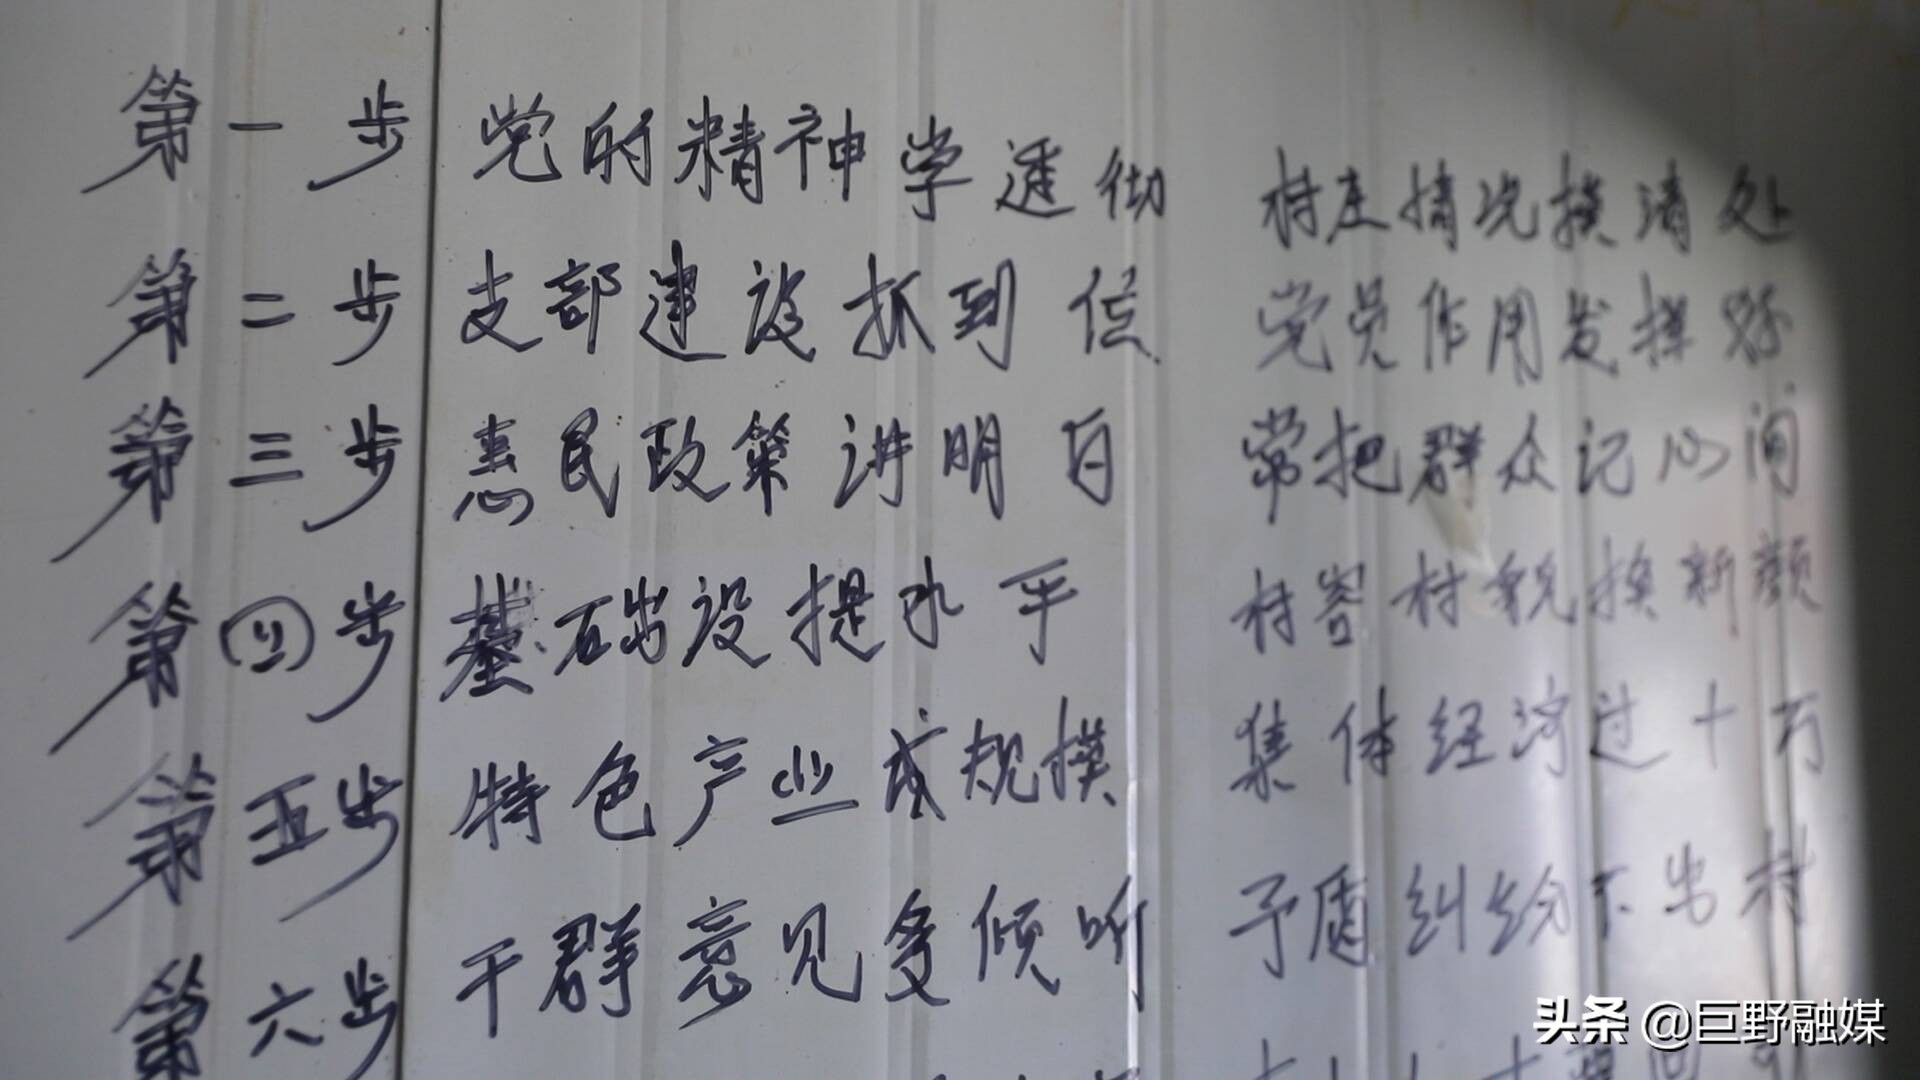 第一步 党的精神学透彻 村庄情况摸清处
第二步 支部建设抓到位 党员作用发挥好
第三步 惠民政策讲明白 常把群众记心间
第四步 基础设提水平 村容村貌换新颜
第五步 特色产业成规模 集体经济过十万
第六步 干群意见多倾听 矛盾纠纷不出村
头条 @巨野融媒